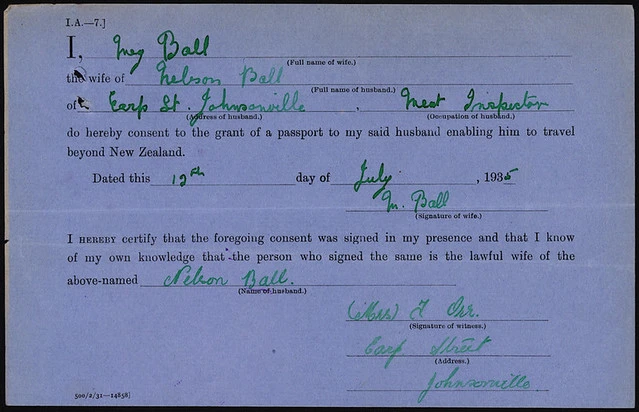 I.A.—7.]
I, Meg Ball
(Full name of wife.)
the wife of Nelson Ball
(Full name of husband.)
of Earp St. Johnsonville, Meat Inspector
(Address of husband.) (Occupation of husband.)
do hereby consent to the grant of a passport to my said husband enabling him to travel
beyond New Zealand.
Dated this 12th day of July, 1935
M. Ball
(Signature of wife.)
I HEREBY certify that the foregoing consent was signed in my presence and that I know
of my own knowledge that the person who signed the same is the lawful wife of the
above-named Nelson Ball.
(Name of husband.)
(Mrs) F Orr.
(Signature of witness.)
Earp Street
(Address.)
Johnsonville.
500/2/31—14858]